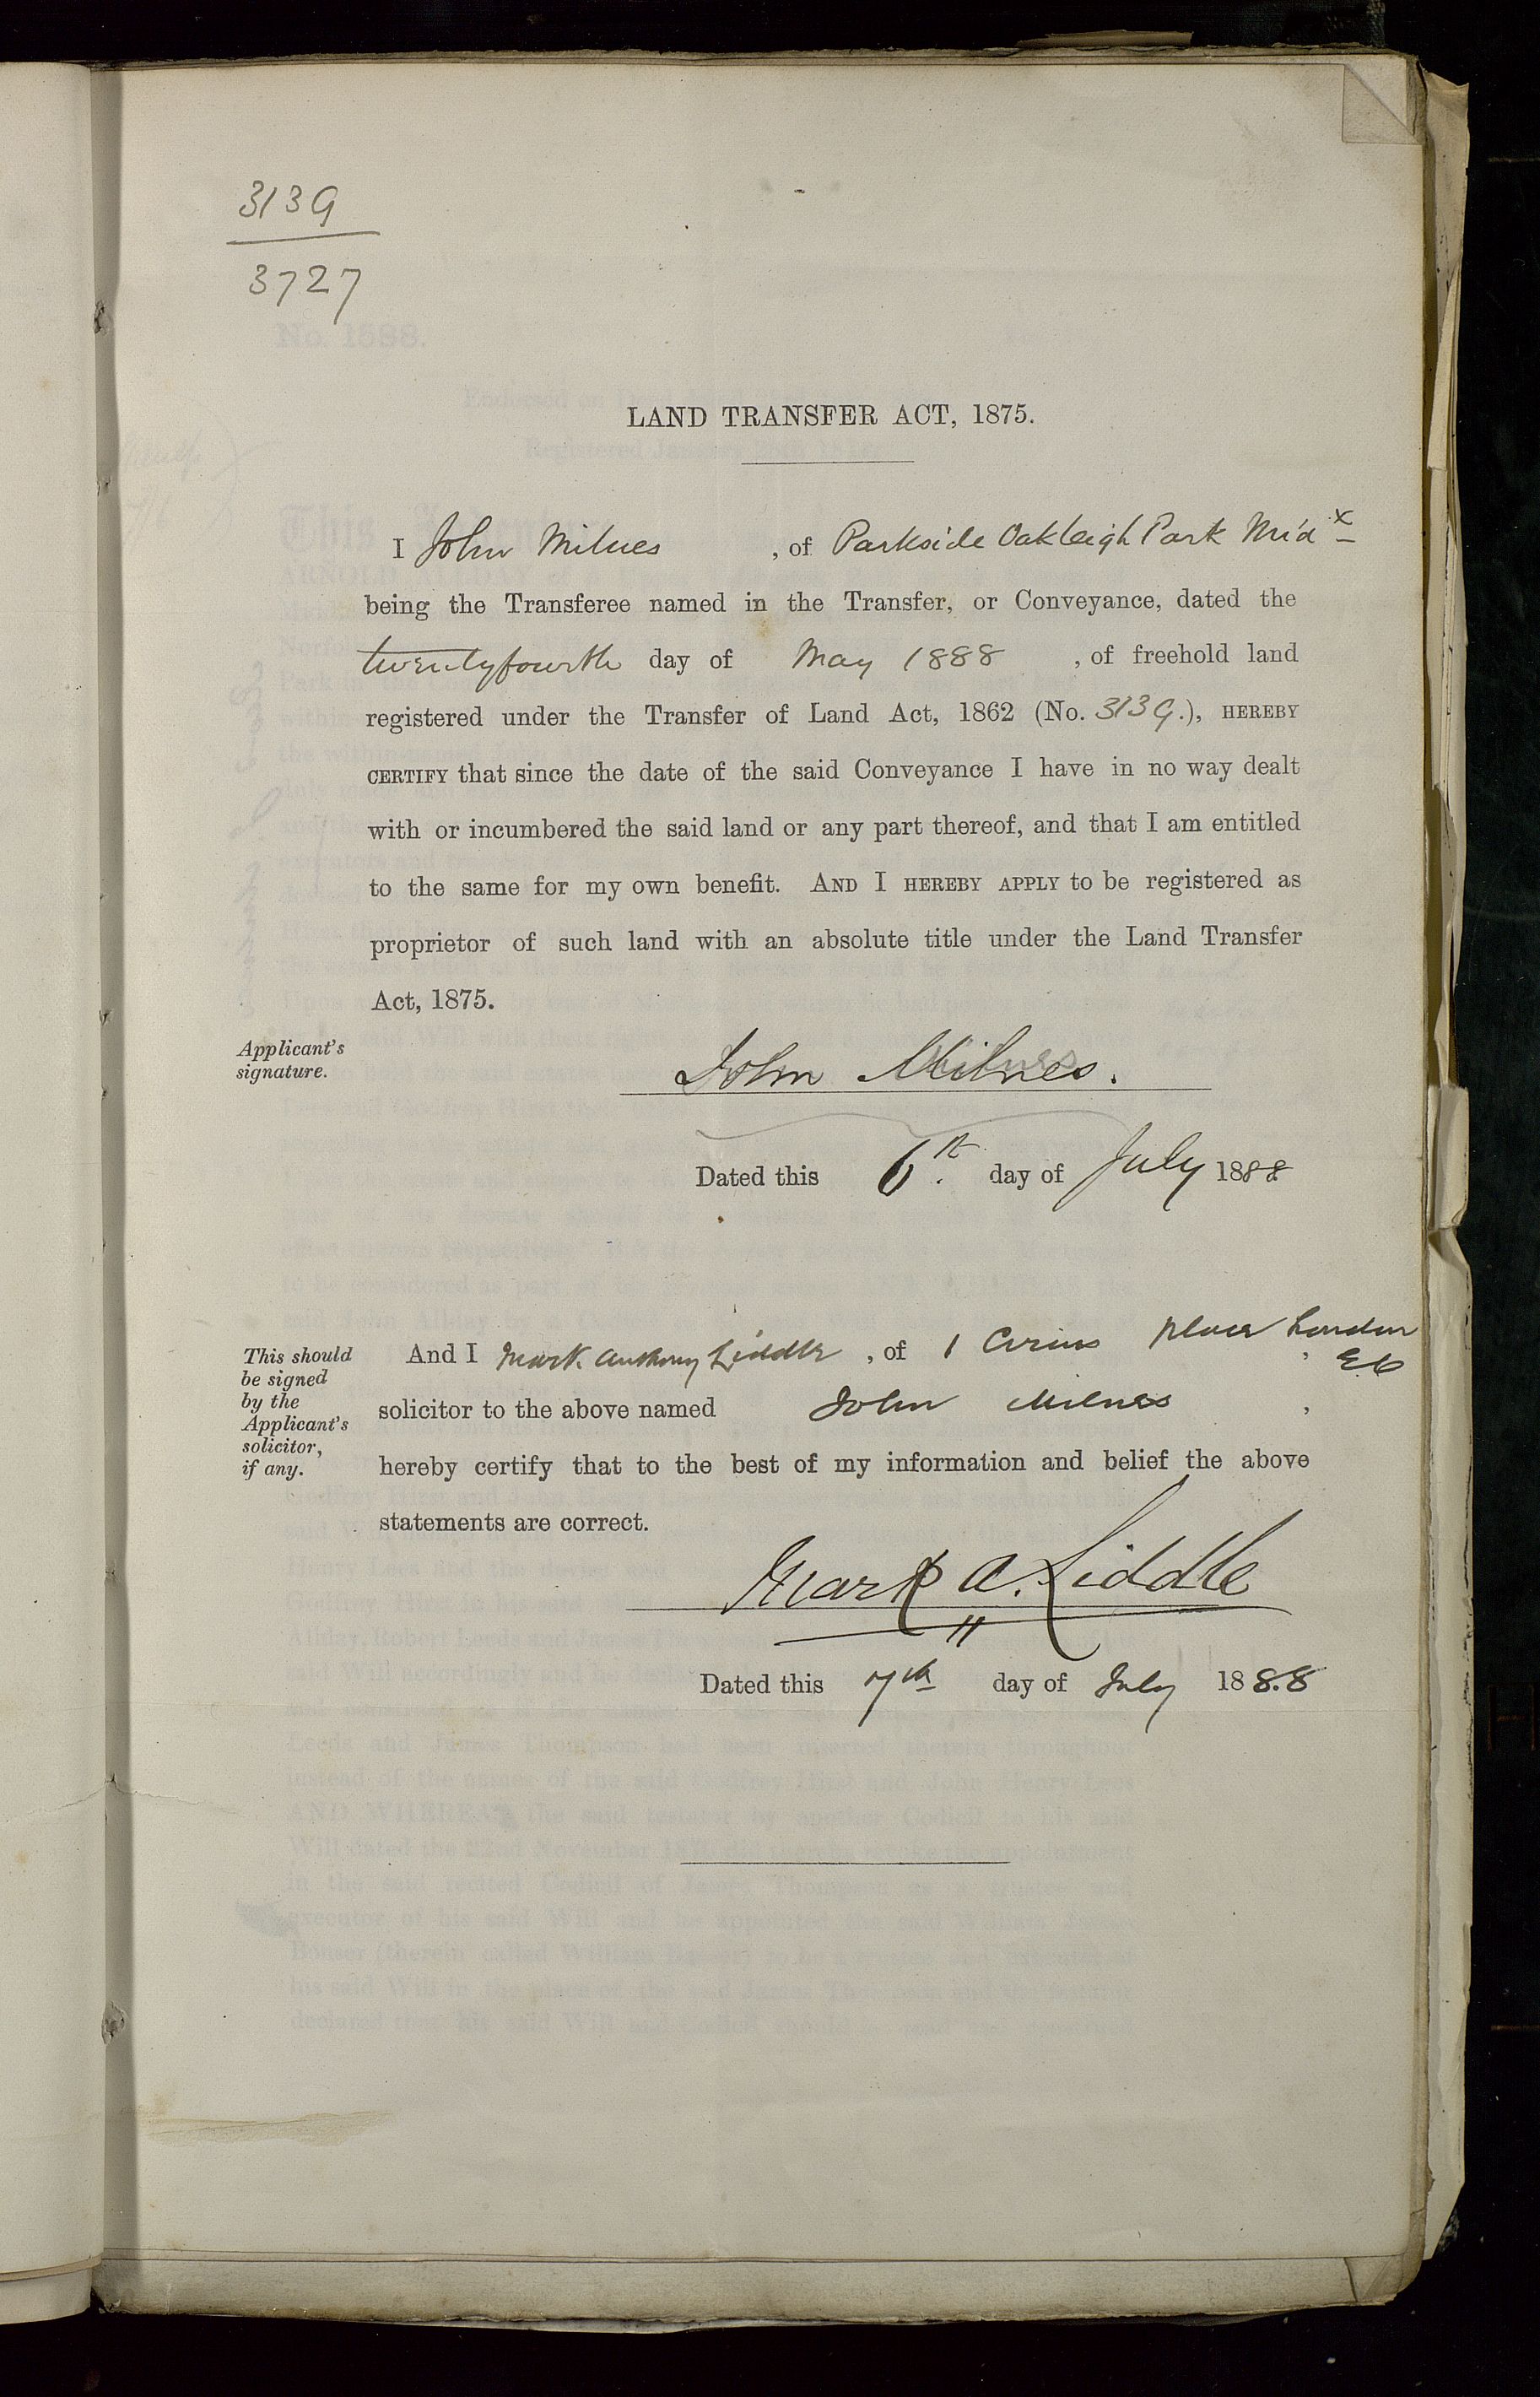 313G
3727
LAND TRANSFER ACT, 1875.
I John Milnes , of Parkside Oakleigh Park Midx
being the Transferee named in the Transfer, or Conveyance, dated the
twentyfourth day of May 1888 , of freehold land
registered under the Transfer of Land Act, 1862 (No. 313G.), HEREBY
CERTIFY that since the date of the said Conveyance I have in no way dealt
with or incumbered the said land or any part thereof, and that I am entitled
to the same for my own benefit. AND I HEREBY APPLY to be registered as
proprietor of such land with an absolute title under the Land Transfer
Act, 1875.
Applicant's
signature.
John Milnes.
Dated this 6th. day of July 1888
This should
be signed
by the
Applicant's
solicitor,
if any.
And I Mark Anthony Liddle , of 1 Circus Place London
EC
solicitor to the above named John Milnes ,
hereby certify that to the best of my information and belief the above
statements are correct.
Mark A. Liddle
Dated this 7th day of July 188.8